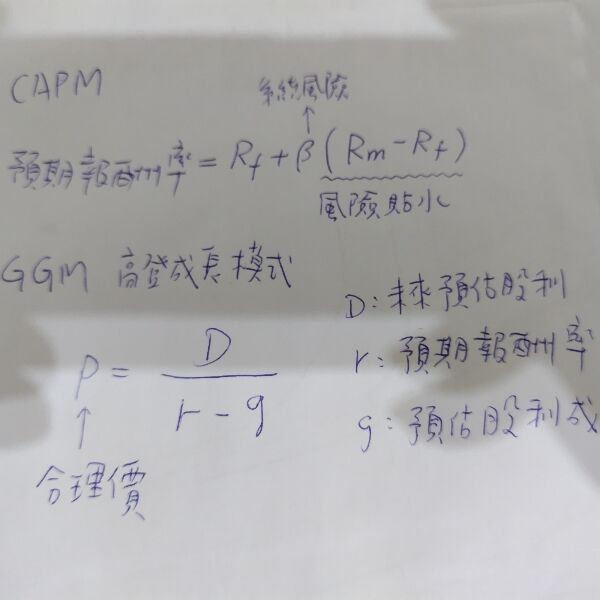 CAPM
系統風險
↑
預期報酬率 = Rf + β (Rm - Rf)
風險貼水
GGM 高登成長模式
D: 未來預估股利
P = D / r - g
r: 預期報酬率
↑
g: 預估股利成
合理價